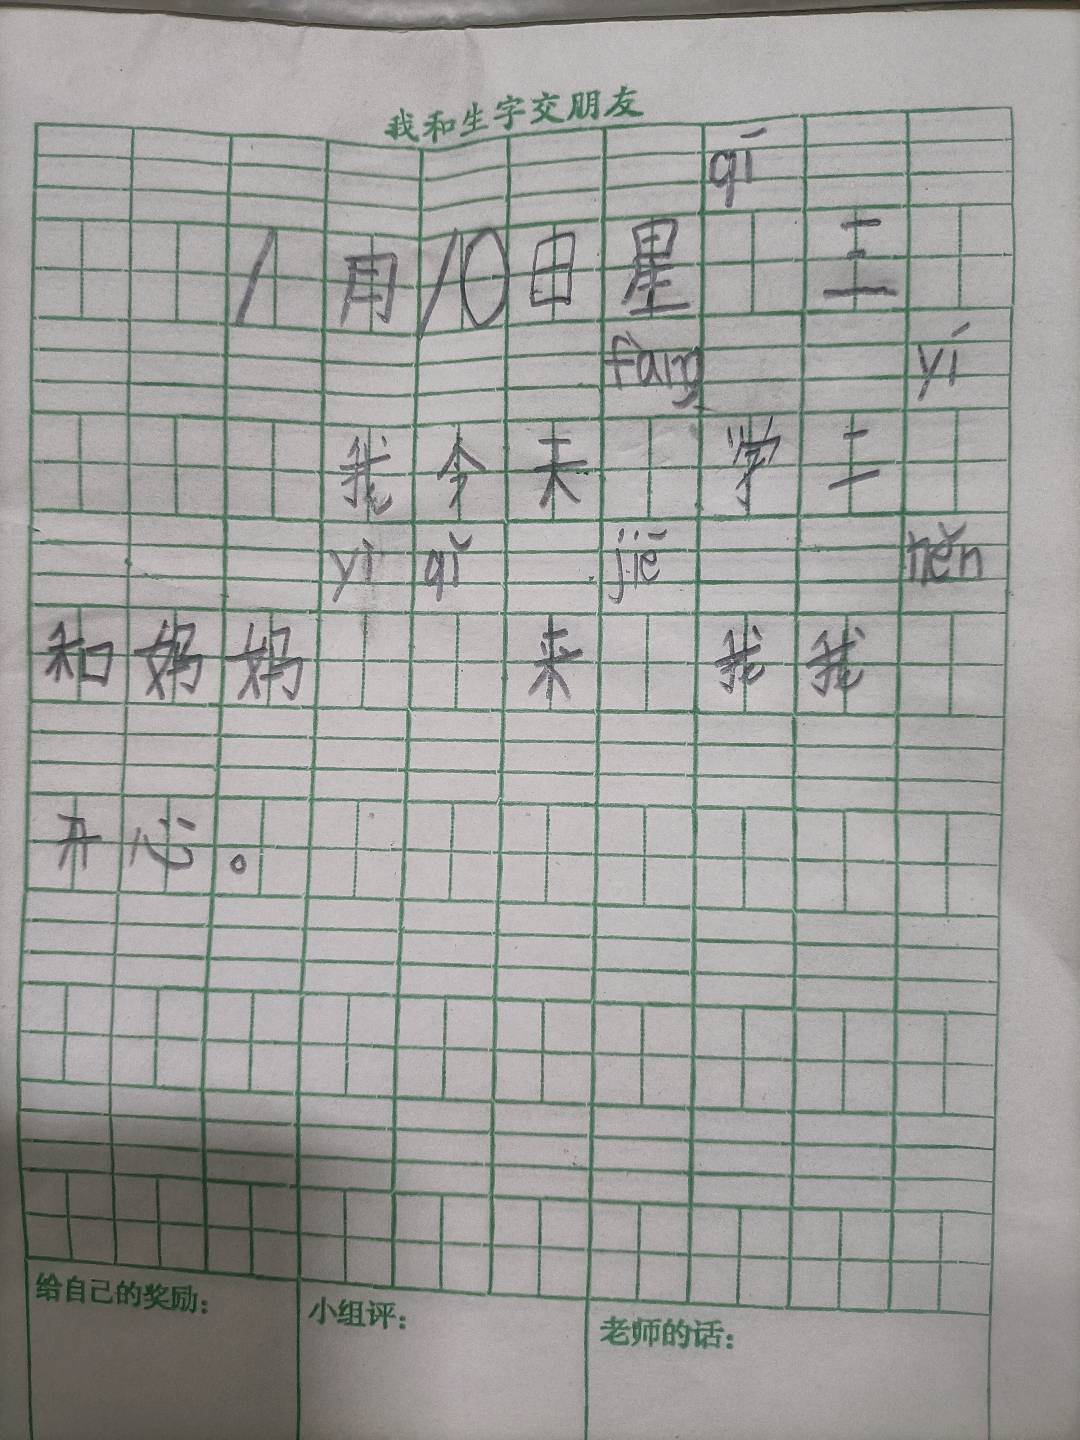 我和生字交朋友
qī
1月10日星 三
fàng yí
我今天 学二
yì qǐ jiě hěn
和妈妈 来 我我
开心。
给自己的奖励：
小组评：
老师的话：